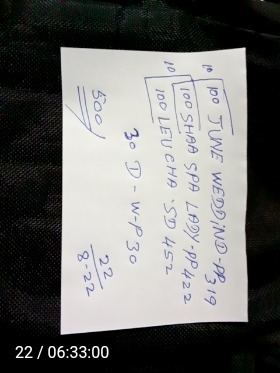 10
100 JUNE WEDDIND-PP319
100 SHAA SPA LADY-PP422
10
100 LEU CHA SD452
30 D-W-P30
500
22
8-22
22 / 06:33:00